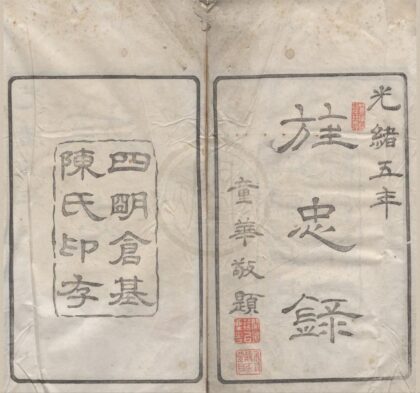 光緒五年
旌忠錄
童華敬題
四明倉基
陳氏印存